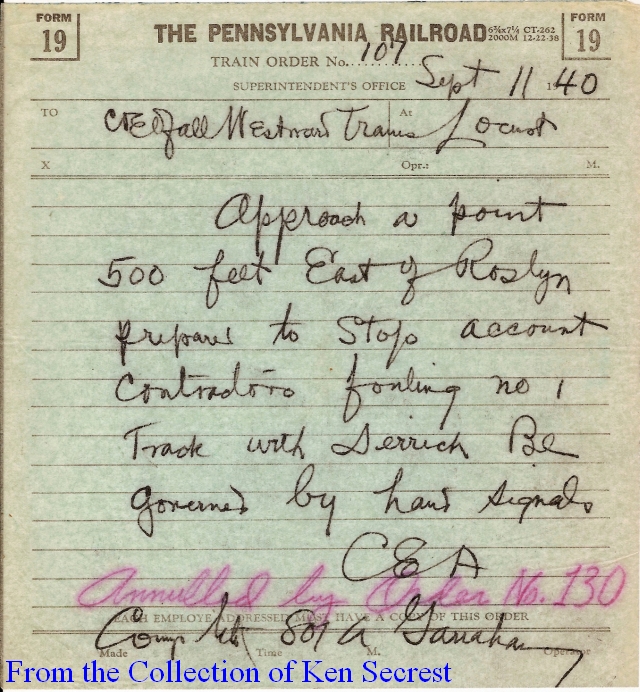 FORM 19 THE PENNSYLVANIA RAILROAD 6¾x7¼ CT-262 2000M 12-22-38 FORM 19
TRAIN ORDER No. 107
SUPERINTENDENT'S OFFICE Sept 11 1940
TO C&E of all Westward Trains At Locust
X Opr.: M.
Approach a point
500 feet East of Roslyn
prepared to Stop account
Contractors fouling no 1
Track with Derrick Be
Governed by hand signals
CEA
Annulled by Order No. 130
EACH EMPLOYE ADDRESSED MUST HAVE A COPY OF THIS ORDER
Made Comp Time 801 A M. Operator
From the Collection of Ken Secrest